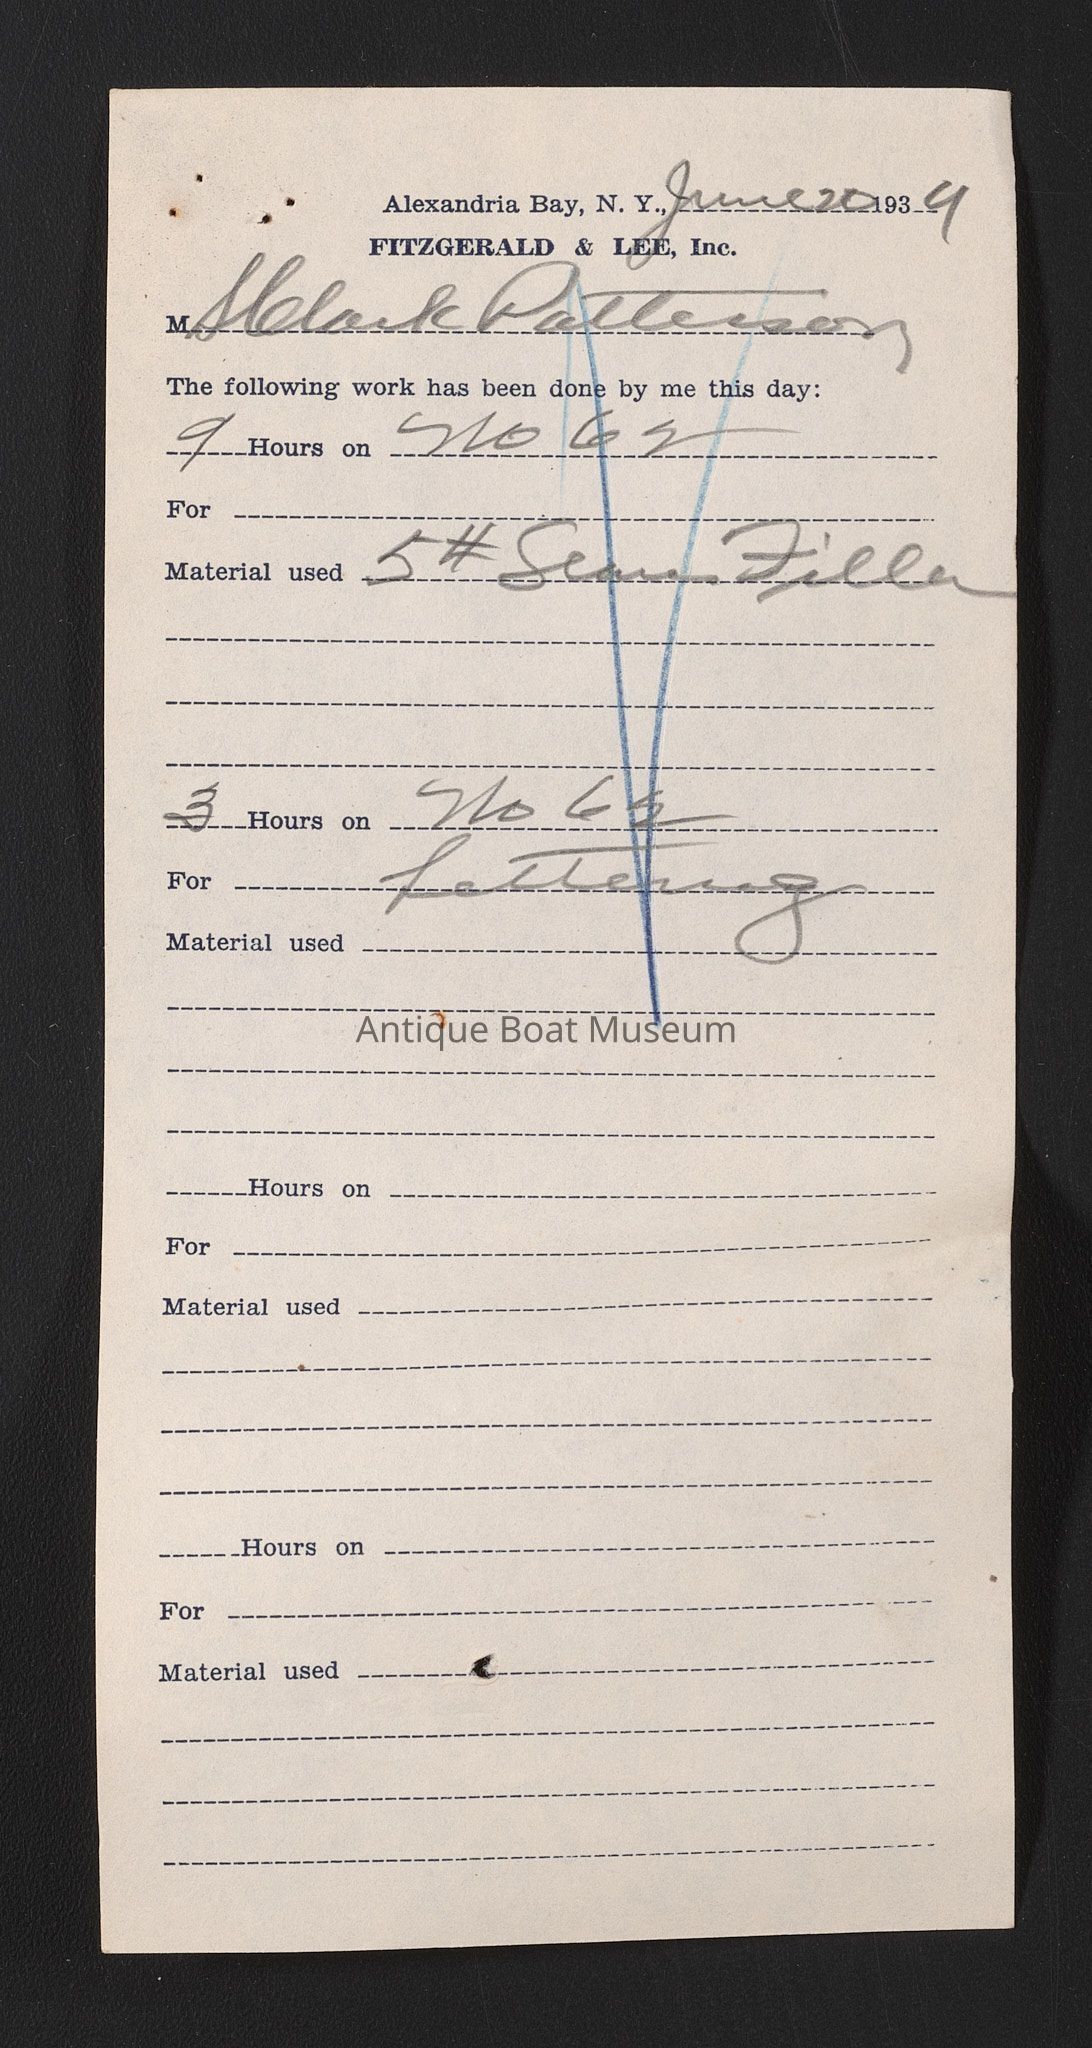 Alexandria Bay, N. Y., June 20 1934
FITZGERALD & LEE, Inc.
M. Clark Patterson
The following work has been done by me this day:
9 Hours on No 62
For
Material used 5# Seam Filler
3 Hours on No 62
For Lettering
Material used
Antique Boat Museum
Hours on
For
Material used
Hours on
For
Material used